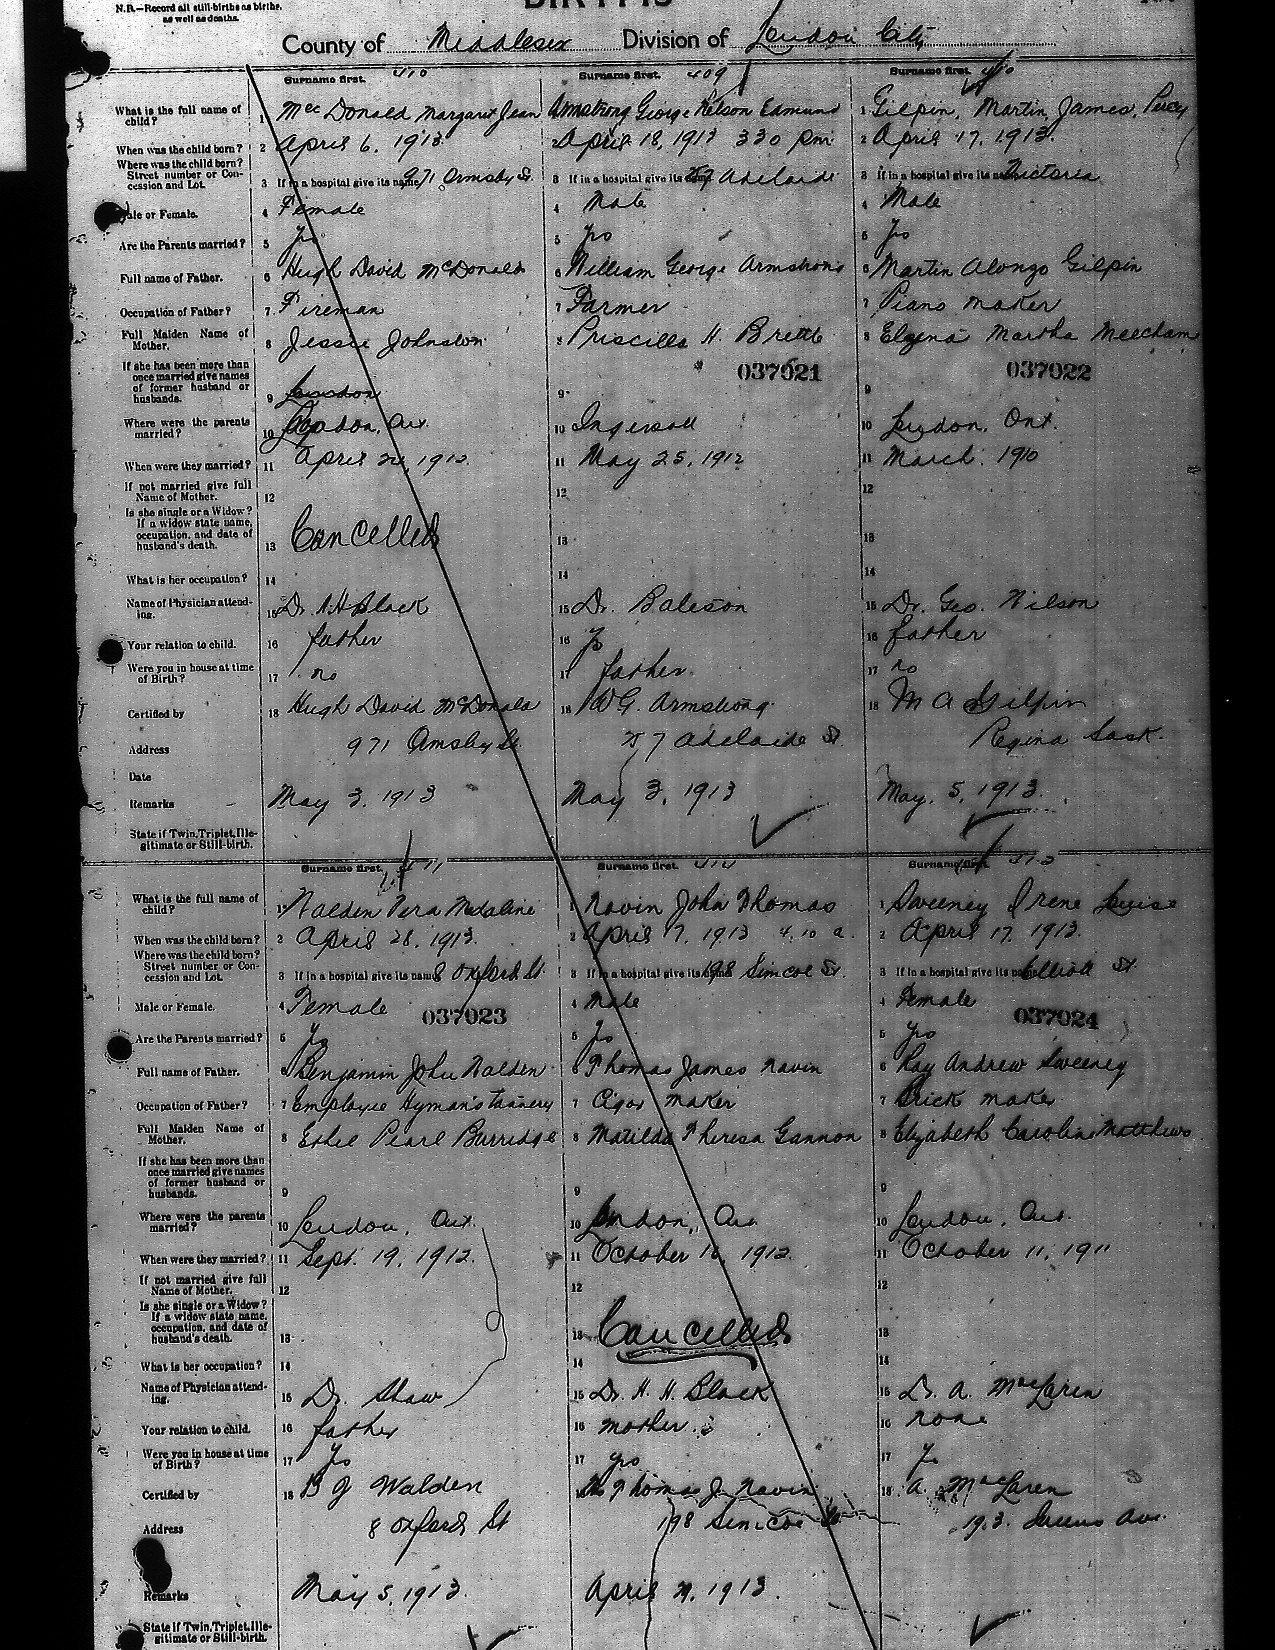 N.B.—Record all still-births as births,
as well as deaths.
BIRTHS
County of Middlesex Division of London City
Surname first. 410
Surname first. 409
Surname first.
What is the full name of
child?
1 McDonald Margaret Jean
Armstrong George Nelson Edmund
1 Gilpin, Martin, James, Percy
When was the child born?
2 April 6, 1913
2 April 18, 1913 330 pm
2 April 17, 1913.
Where was the child born?
Street number or Con-
cession and Lot.
3 If in a hospital give its name 971 Ormsby St
3 If in a hospital give its Adelaide
3 If in a hospital give its Victoria
Male or Female.
4 Female
4 Male
4 Male
Are the Parents married?
5 Yes
5 yes
5 Yes
Full name of Father.
6 Hugh David McDonald
6 William George Armstrong
6 Martin Alongo Gilpin
Occupation of Father?
7 Fireman
7 Farmer
7 Piano maker
Full Maiden Name of
Mother.
8 Jessie Johnston
8 Priscilla H. Brett
8 Martha Meecham
If she has been more than
once married give names
of former husband or
husbands.
037021
037022
9 London
9
9
Where were the parents
married?
10 London, Ont.
10 Ingersoll
10 London, Ont.
When were they married?
11 April 1912.
11 May 25, 1912
11 March. 1910
If not married give full
Name of Mother.
12
12
12
Is she single or a Widow?
If a widow state name,
occupation, and date of
husband's death.
13 Cancelled
13
13
What is her occupation?
14
14
14
Name of Physician attend-
ing.
15 Dr. H H Black
15 Dr. Bateson
15 Dr. Geo. Wilson
Your relation to child.
16 father
16 yes
16 father
Were you in house at time
of Birth?
17 no
17 father
17 no
Certified by
18 Hugh David McDonald
18 W G. Armstrong
18 M A Gilpin
Address
971 Ormsby St
Adelaide St
Regina Sask.
Date
Remarks
May 3, 1913
May 3, 1913
May, 5, 1913.
State if Twin, Triplet, Ille-
gitimate or Still-birth.
Surname first. 411
Surname first. 412
Surname first. 413
What is the full name of
child?
1 Walden Vera Madaline
1 Navin John Thomas
1 Sweeney Irene Louise
When was the child born?
2 April 28, 1913.
2 April 7, 1913 4.10 a.
2 April 17, 1913.
Where was the child born?
Street number or Con-
cession and Lot.
3 If in a hospital give its name 8 Oxford St
3 If in a hospital give its name 198 Simcoe St.
3 If in a hospital give its name Elliott St.
Male or Female.
4 Female 037023
4 Male
4 Female 037024
Are the Parents married?
5 Yes
5 Yes
5 yes
Full name of Father.
6 Benjamin John Walden
6 Thomas James Navin
6 Ray Andrew Sweeney
Occupation of Father?
7 Employee Hyman's tannery
7 Cigar maker
7 Brick maker
Full Maiden Name of
Mother.
8 Ethel Pearl Burridge
8 Matilda Theresa Gannon
8 Elizabeth Caroline Matthews
If she has been more than
once married give names
of former husband or
husbands.
9
9
9
Where were the parents
married?
10 London, Ont.
10 London, Ont
10 London, Ont.
When were they married?
11 Sept. 19, 1912.
11 October 16, 1912.
11 October 11, 1911
If not married give full
Name of Mother.
12
12
12
Is she single or a Widow?
If a widow state name,
occupation, and date of
husband's death.
13
13 Cancelled
13
What is her occupation?
14
14
14
Name of Physician attend-
ing.
15 Dr. Shaw
15 Dr. H. H. Black
15 Dr. A. MacLaren
Your relation to child.
16 father
16 mother
16 none
Were you in house at time
of Birth?
17 Yes
17 yes
17 Yes
Certified by
18 B J Walden
Thomas J. Navin
18 A. MacLaren
Address
8 Oxford St
198 Simcoe St
Queens Ave.
Remarks
May 5, 1913.
April 1913.
State if Twin, Triplet, Ille-
gitimate or Still-birth.